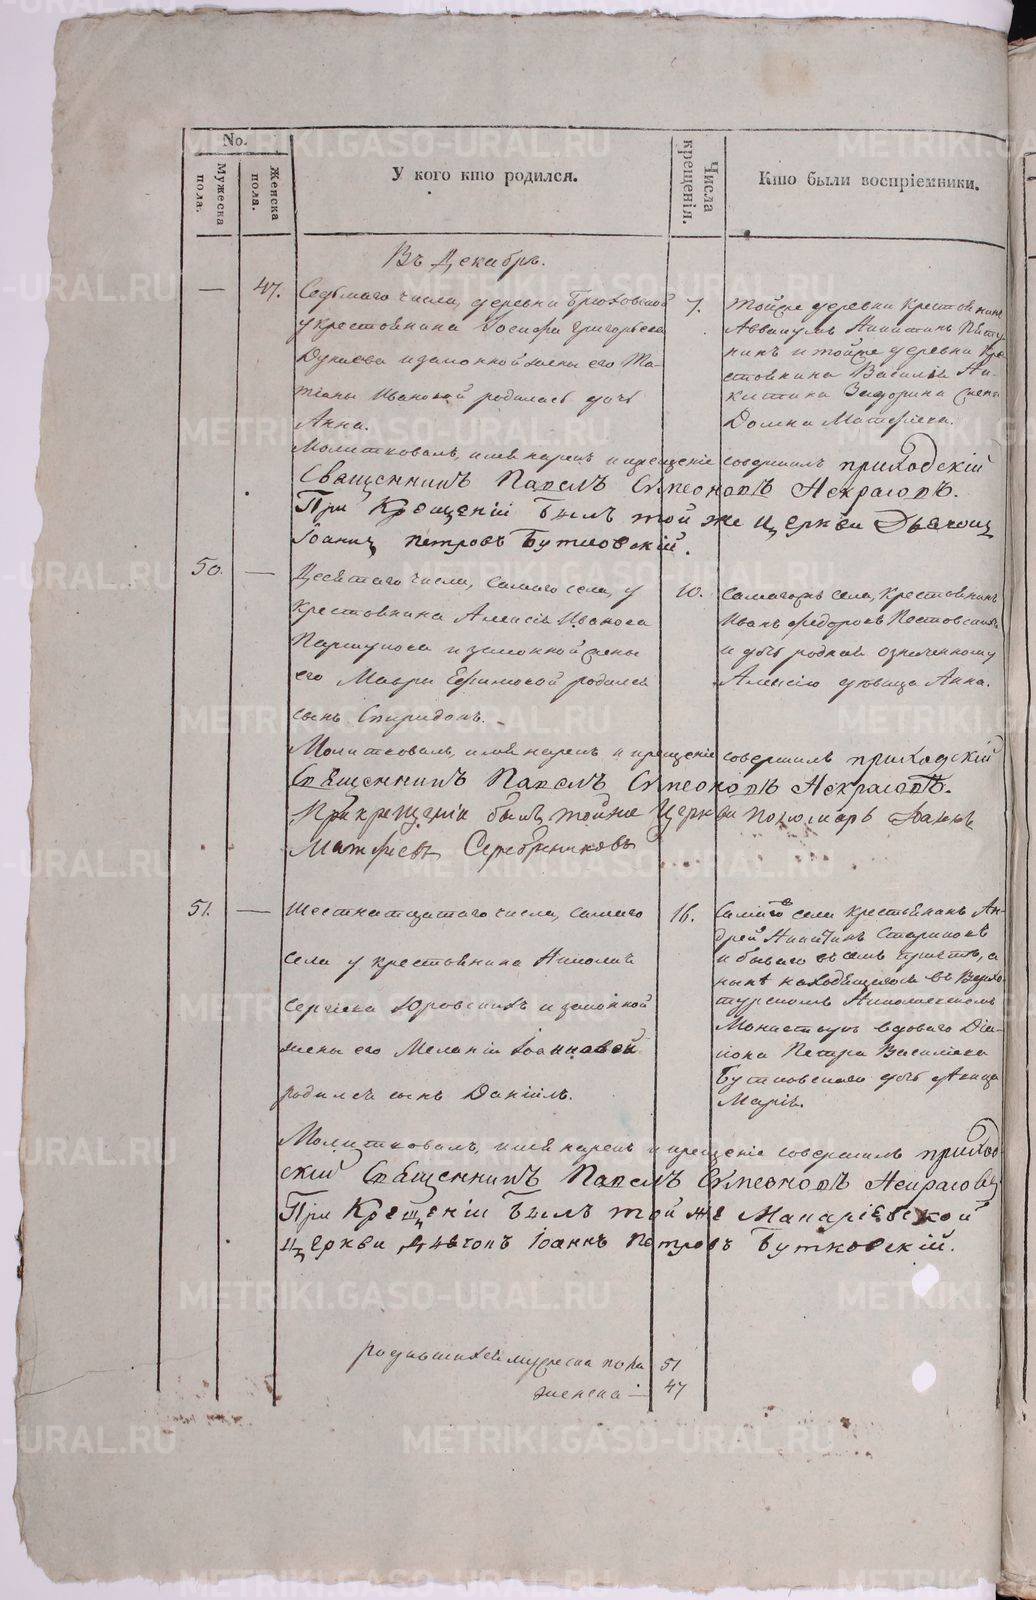 No.
Мужеска пола.
Женска пола.
У кого кто родился.
Числа крещенія.
Кто были воспріемники.
Въ Декабрѣ.
— 47. Седьмаго числа, деревни
у крестьянина Іосифа Григорьева
и законной жены его Та-
тіаны Ивановой родилась дочь
Анна.
7. тойже деревни крестьянинъ
Аввакумъ Никитинъ
и тойже деревни кре-
стьянина Василія Ни-
китина жена
Домна Матфіева.
Молитвовалъ, имя нарекъ и крещеніе совершилъ приходскій
Священникъ Павелъ Сѵмеоновъ Некрасовъ.
При Крещеніи былъ той же Церкви Дьячокъ
Іоаннъ Петровъ Бутковскій.
50. — Десятаго числа, самаго села, у
крестьянина Алексія Иванова
и законной жены
его Мавры Ефимовой родился
сынъ Спиридонъ.
10. Самагожъ села, крестьянинъ
Иванъ Федоровъ
и дочь родная означенному
Алексію девица Анна.
Молитвовалъ, имя нарекъ и крещеніе совершилъ приходскій
Священникъ Павелъ Сѵмеоновъ Некрасовъ.
При крещеніи былъ тойже Церкви пономарь
Матфіевъ Серебрениковъ
51. — Шестнатцатаго числа, самаго
села у крестьянина Николая
Сергіева Юровскихъ и законной
жены его Меланіи Іоанновой
родился сынъ Даніилъ.
16. Самаго села крестьянинъ Ан-
дрей Никитинъ Стариковъ
и бывшаго въ семъ причтѣ, а
нынѣ находящагося въ Верхо-
турскомъ Николаевскомъ
Монастырѣ вдоваго Діа-
кона Петра Василіева
Бутковскаго дочь девица
Марія.
Молитвовалъ, имя нарекъ и крещеніе совершилъ приход-
скій Священникъ Павелъ Сѵмеоновъ Некрасовъ
При Крещеніи былъ той же Макаріевской
Церкви Дьячокъ Іоаннъ Петровъ Бутковскій.
родившихся мужеска пола 51
женска — 47
METRIKI.GASO-URAL.RU